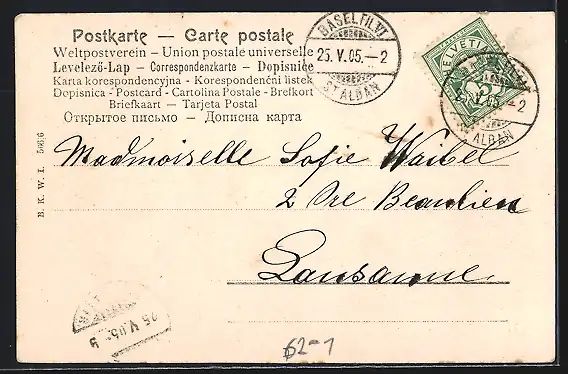 Postkarte — Carte postale
Weltpostverein – Union postale universelle
Levelező-Lap – Correspondenzkarte – Dopisnice
Karta korespondencyjna - Korespondenční listek
Dopisnica - Postcard - Cartolina Postale - Brefkort
Briefkaart – Tarjeta Postal
Открытое письмо – Дописна карта
BASEL FIL. VI
25. V. 05. – 2
ST ALBAN
HELVETIA
– 2
ALBAN
Mademoiselle Sofie Waibel
2 Pré Beaulieu
Lausanne
B. K. W. I.
25 V 05
62-1